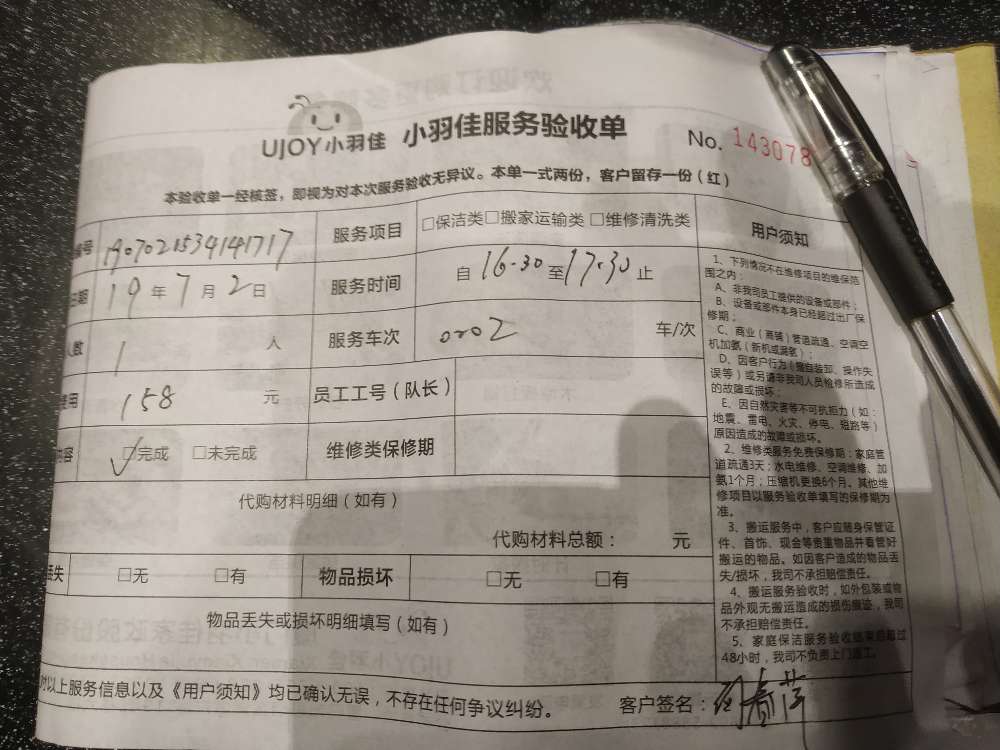 UJOY小羽佳 小羽佳服务验收单 No. 143078
本验收单一经核签，即视为对本次服务验收无异议。本单一式两份，客户留存一份(红)
编号 服务项目 □保洁类□搬家运输类 □维修清洗类
日期 19年7月2日 服务时间 自16.30至17.30止
人数 1 人 服务车次 车/次
费用 158 元 员工工号(队长)
内容 □完成 □未完成 维修类保修期
代购材料明细(如有)
代购材料总额： 元
丢失 □无 □有 物品损坏 □无 □有
物品丢失或损坏明细填写(如有)
对以上服务信息以及《用户须知》均已确认无误，不存在任何争议纠纷。 客户签名：
用户须知
1、下列情况不在维修项目的维保范
围之内：
A、非我司员工提供的设备或部件；
B、设备或部件本身已经超过出厂保
修期；
C、商业（商铺）管道疏通、空调空
机加氨（新机或漏氨）；
D、因客户行为（擅自装卸、操作失
误等）或另请非我司人员检修所造成
的故障或损坏；
E、因自然灾害等不可抗拒力（如：
地震、雷电、火灾、停电、短路等）
原因造成的故障或损坏。
2、维修类服务免费保修期：家庭管
道疏通3天；水电维修、空调维修、加
氨1个月；压缩机更换6个月。其他维
修项目以服务验收单填写的保修期为
准。
3、搬运服务中，客户应随身保管证
件、首饰、现金等贵重物品并看管好
搬运的物品。如因客户造成的物品丢
失/损坏，我司不承担赔偿责任。
4、搬运服务验收时，如外包装或物
品外观无搬运造成的损伤痕迹，我司
不承担赔偿责任。
5、家庭保洁服务验收结束后超过
48小时，我司不负责上门返工。